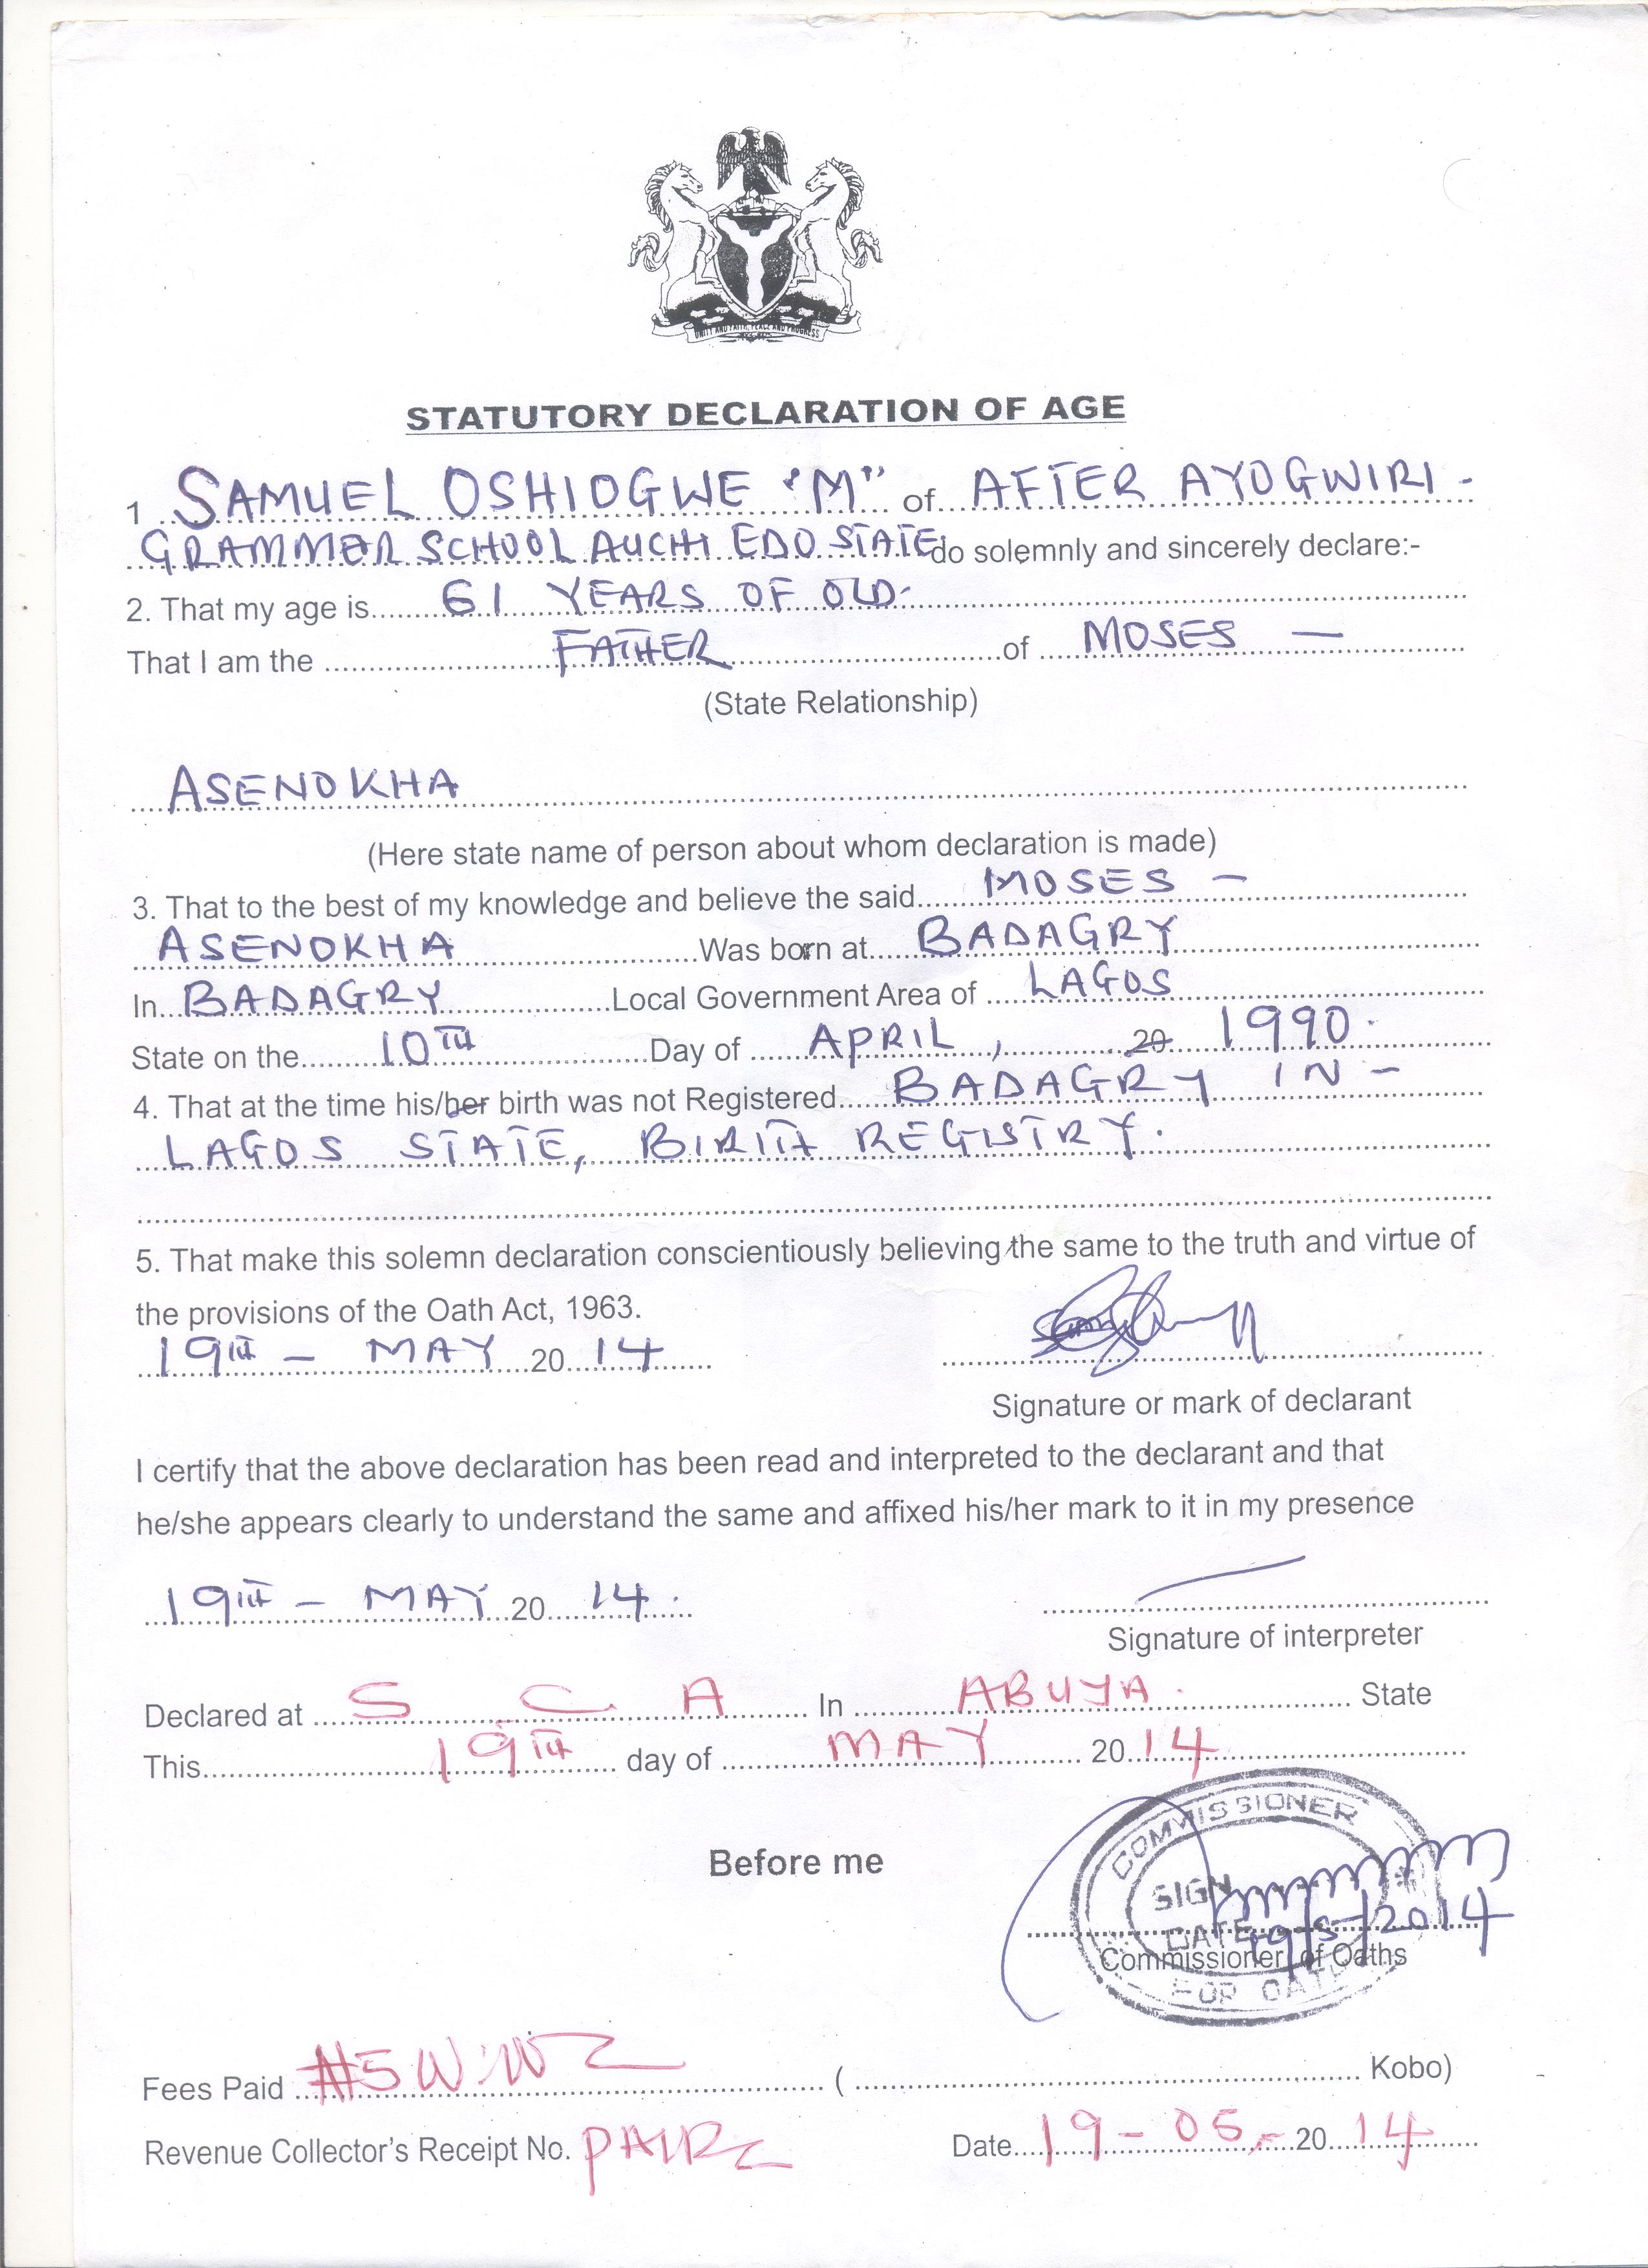 UNITY AND FAITH, PEACE AND PROGRESS
STATUTORY DECLARATION OF AGE
1 SAMUEL OSHIOGWE "M" of AFTER AYOGWIRI -
GRAMMER SCHOOL AUCHI EDO STATE do solemnly and sincerely declare:-
2. That my age is 61 YEARS OF OLD.
That I am the FATHER of MOSES —
(State Relationship)
ASENOKHA
(Here state name of person about whom declaration is made)
3. That to the best of my knowledge and believe the said MOSES -
ASENOKHA Was born at BADAGRY
In BADAGRY Local Government Area of LAGOS
State on the 10TH Day of APRIL, 20 1990.
4. That at the time his/her birth was not Registered BADAGRY IN -
LAGOS STATE, BIRTH REGISTRY.
5. That make this solemn declaration conscientiously believing the same to the truth and virtue of
the provisions of the Oath Act, 1963.
19TH - MAY 2014
Signature or mark of declarant
I certify that the above declaration has been read and interpreted to the declarant and that
he/she appears clearly to understand the same and affixed his/her mark to it in my presence
19TH - MAY 2014.
Signature of interpreter
Declared at S C A In ABUJA. State
This 19TH day of MAY 2014
COMMISSIONER
Before me
SIGN
DATE 19/5/2014
Commissioner of Oaths
FOR OATH
Fees Paid ₦5 ( Kobo)
Revenue Collector's Receipt No. Date 19-05-2014